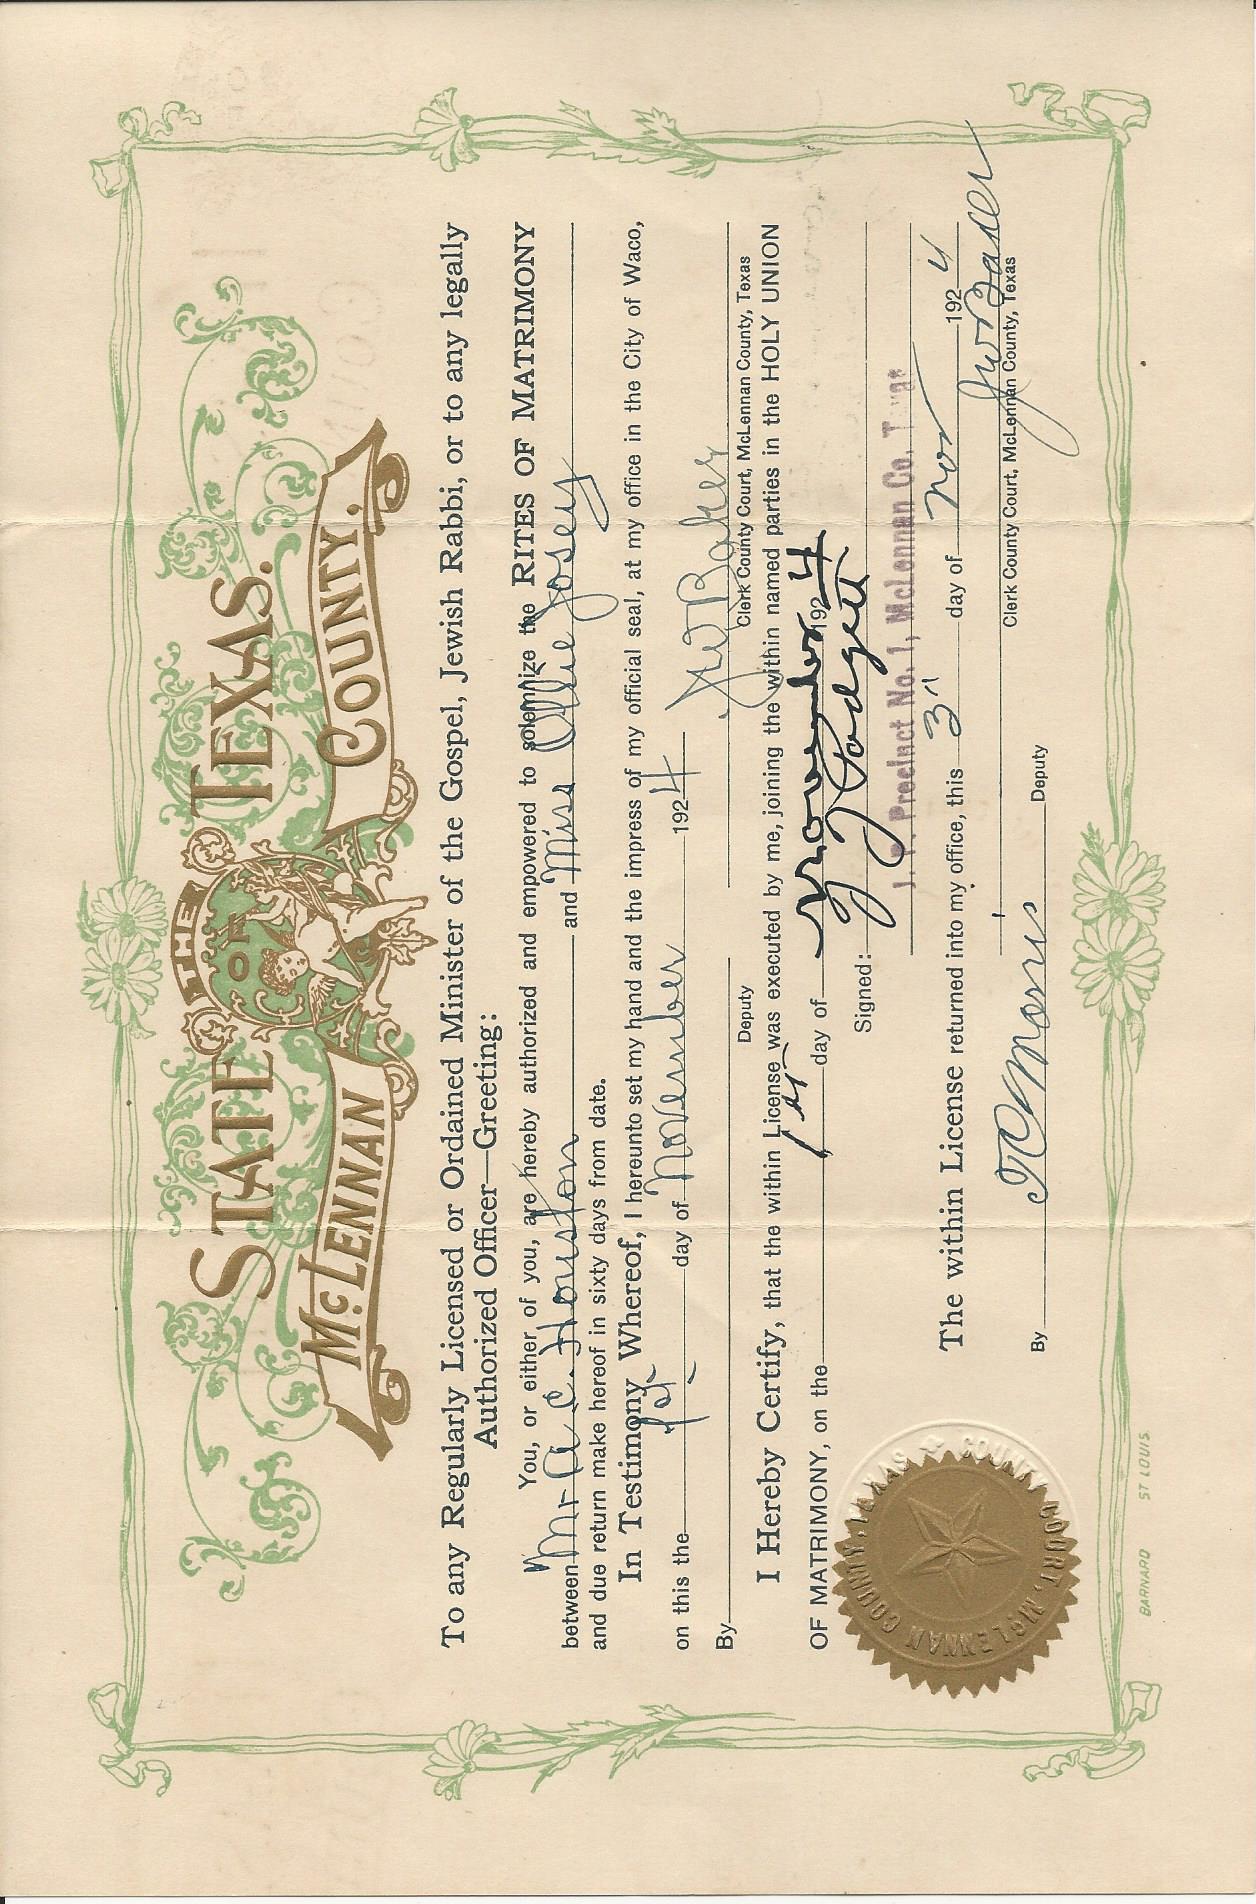 THE
STATE OF TEXAS.
McLENNAN COUNTY.
To any Regularly Licensed or Ordained Minister of the Gospel, Jewish Rabbi, or to any legally
Authorized Officer—Greeting:
You, or either of you, are hereby authorized and empowered to solemnize the RITES OF MATRIMONY
between Mr A. C. Houston and Miss Ollie Josey
and due return make hereof in sixty days from date.
In Testimony Whereof, I hereunto set my hand and the impress of my official seal, at my office in the City of Waco,
on this the 1st day of November 1924
By Deputy J W Baker
Clerk County Court, McLennan County, Texas
I Hereby Certify, that the within License was executed by me, joining the within named parties in the HOLY UNION
OF MATRIMONY, on the 1st day of November 1924
Signed: Padgett
J. P. Precinct No. 1, McLennan Co. Texas
The within License returned into my office, this 3" day of Nov 1924
J W Baker
Clerk County Court, McLennan County, Texas
By Morris Deputy
COUNTY COURT, McLENNAN COUNTY, TEXAS
BARNARD ST LOUIS